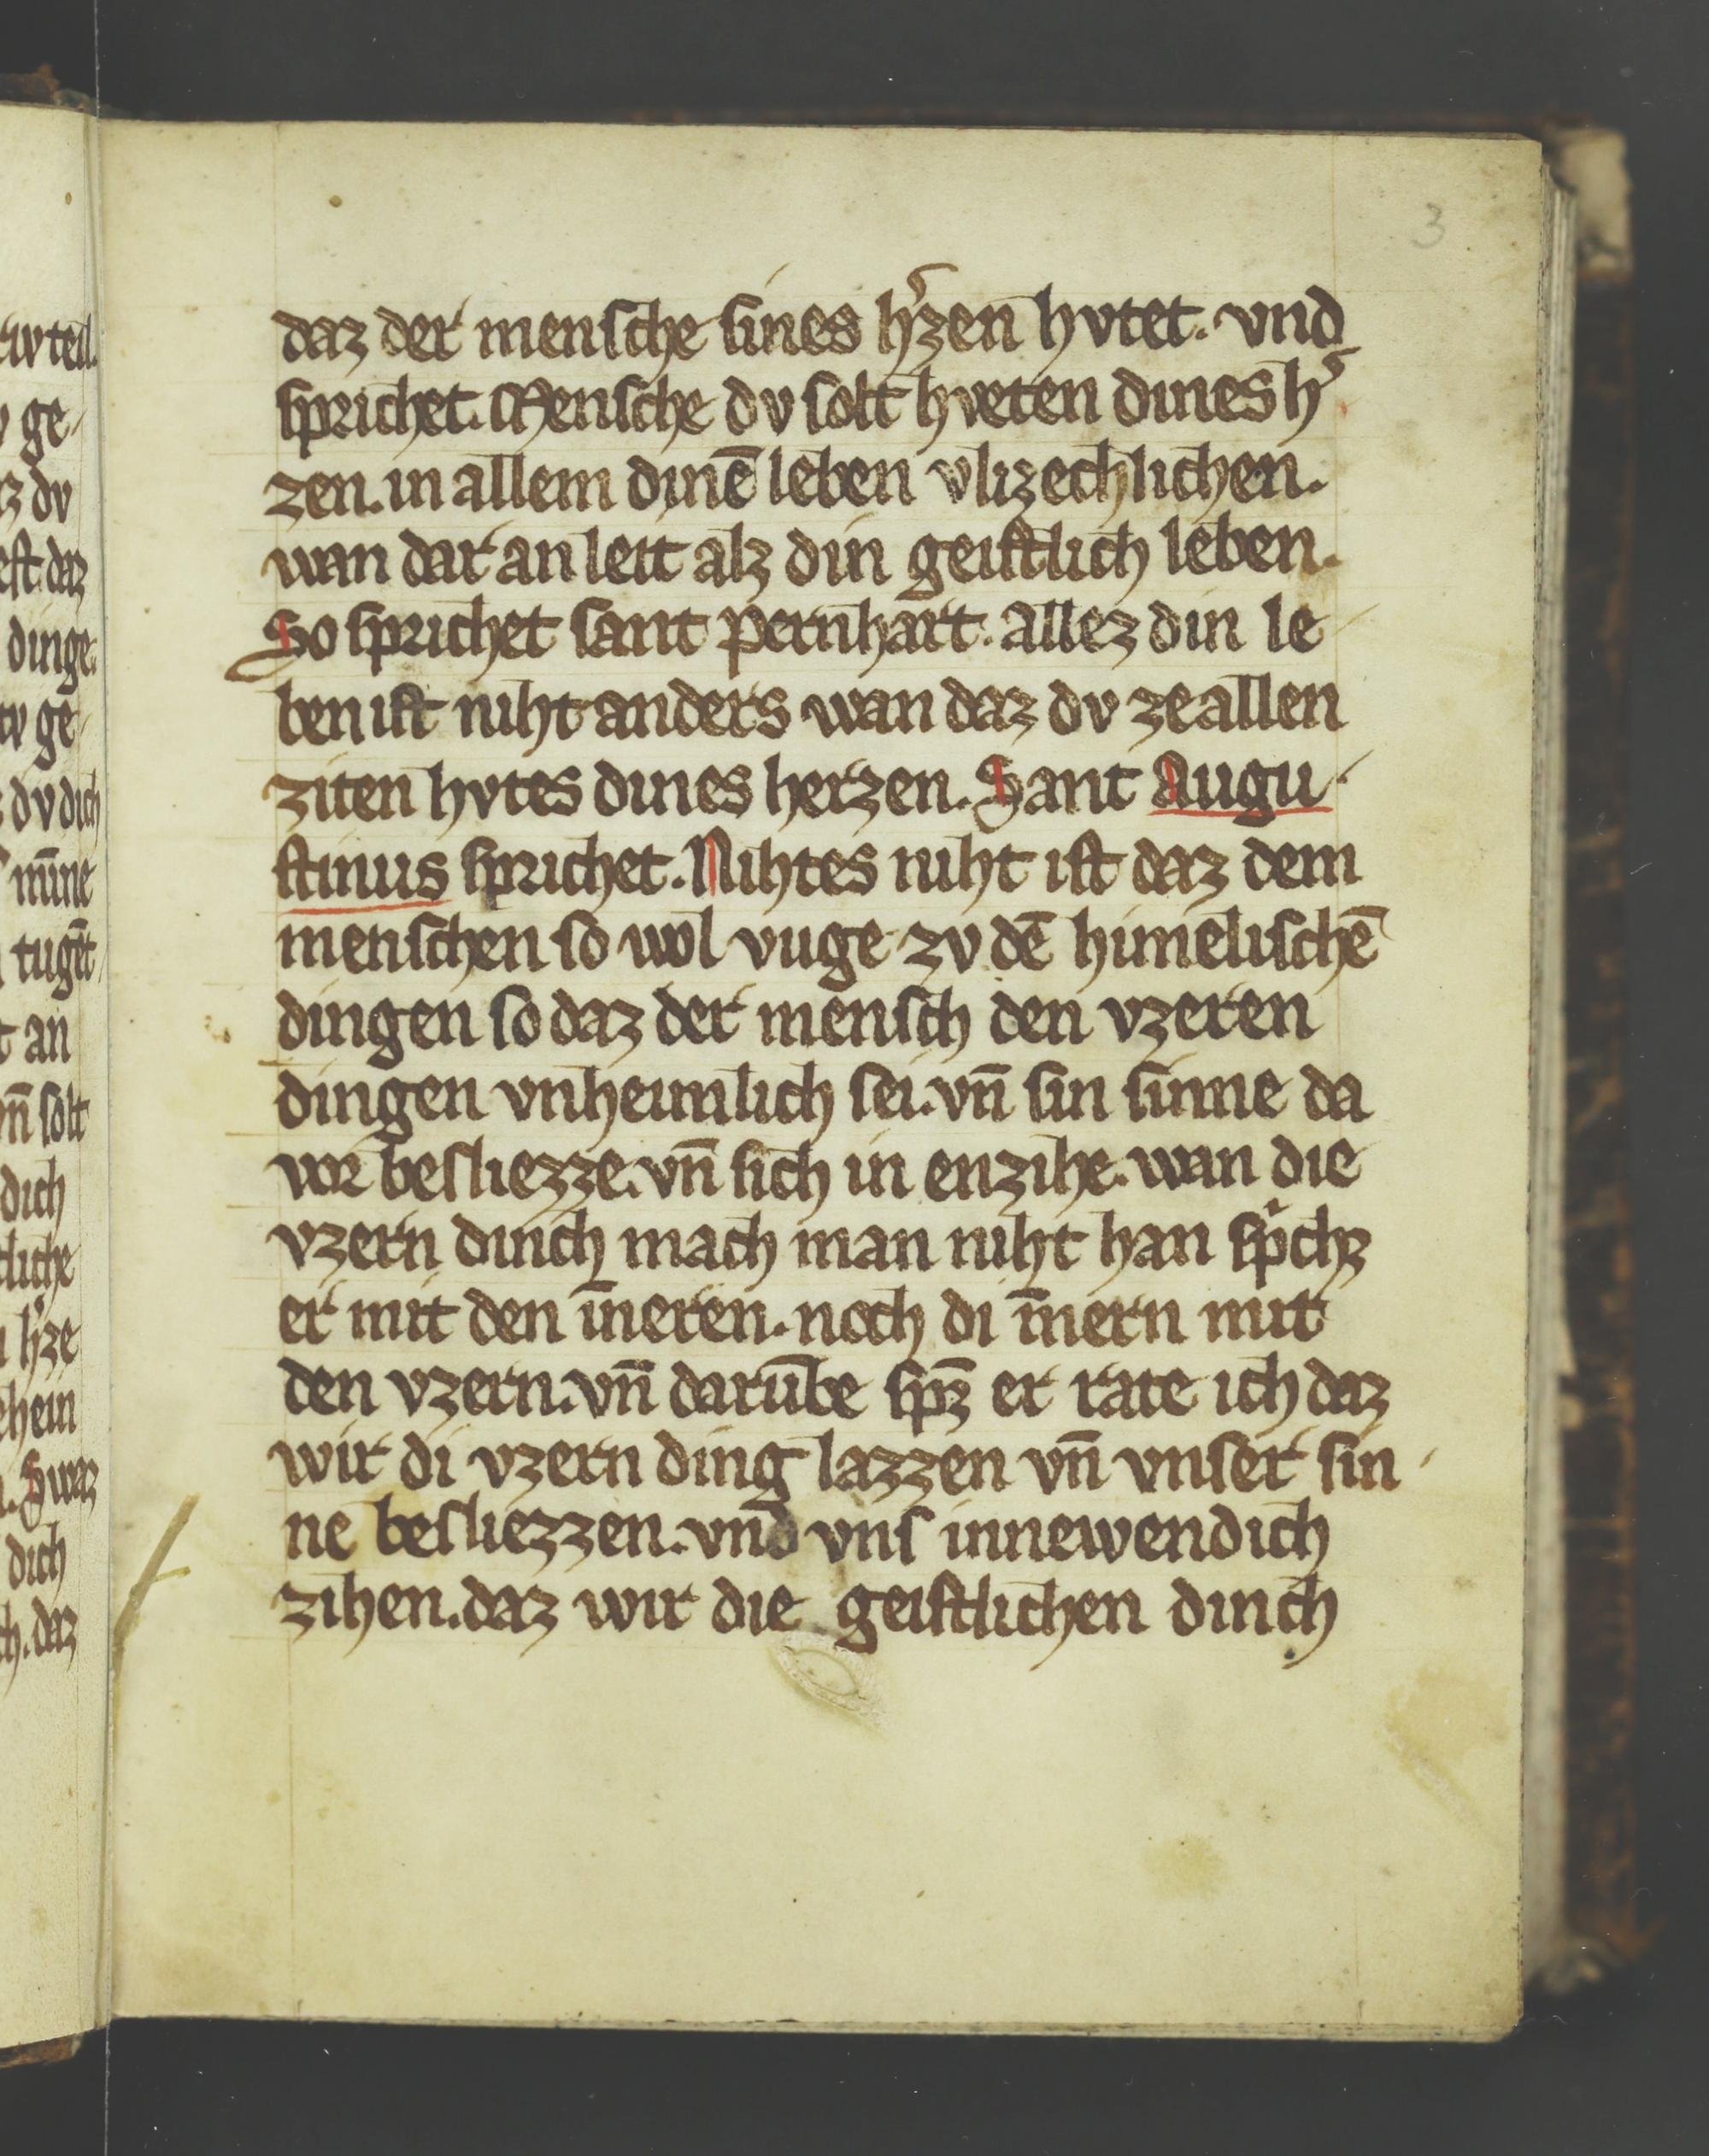 daz der mensche sines h'zen hvtet. vnd
sprichet. Mensche dv solt hveten dines h'
zen. in allem dinē leben vlizechlichen.
wan dar an leit alz din geistlich leben.
So sprichet sant pernhart. allez din le
ben ist niht anders wan daz dv ze allen
ziten hvtes dines herzen. Sant Augu
stinus sprichet. Nihtes niht ist daz dem
menschen so wol vuge zv dē himelischē
dingen so daz der mensch den vzeren
dingen vnheimlich sei. vn̄ sin sinne da
vor besliezze. vn̄ sich in enzihe. wan die
vzern dinch mach man niht han sp̍chꝫ
er mit den īneren. noch di īnern mit
den vzern. vn̄ darūbe spꝫ er rate ich daz
wir di vzern ding lazzen vn̄ vnser sin
ne besliezzen. vnd vns innewendich
zihen. daz wir die geistlichen dinch
3